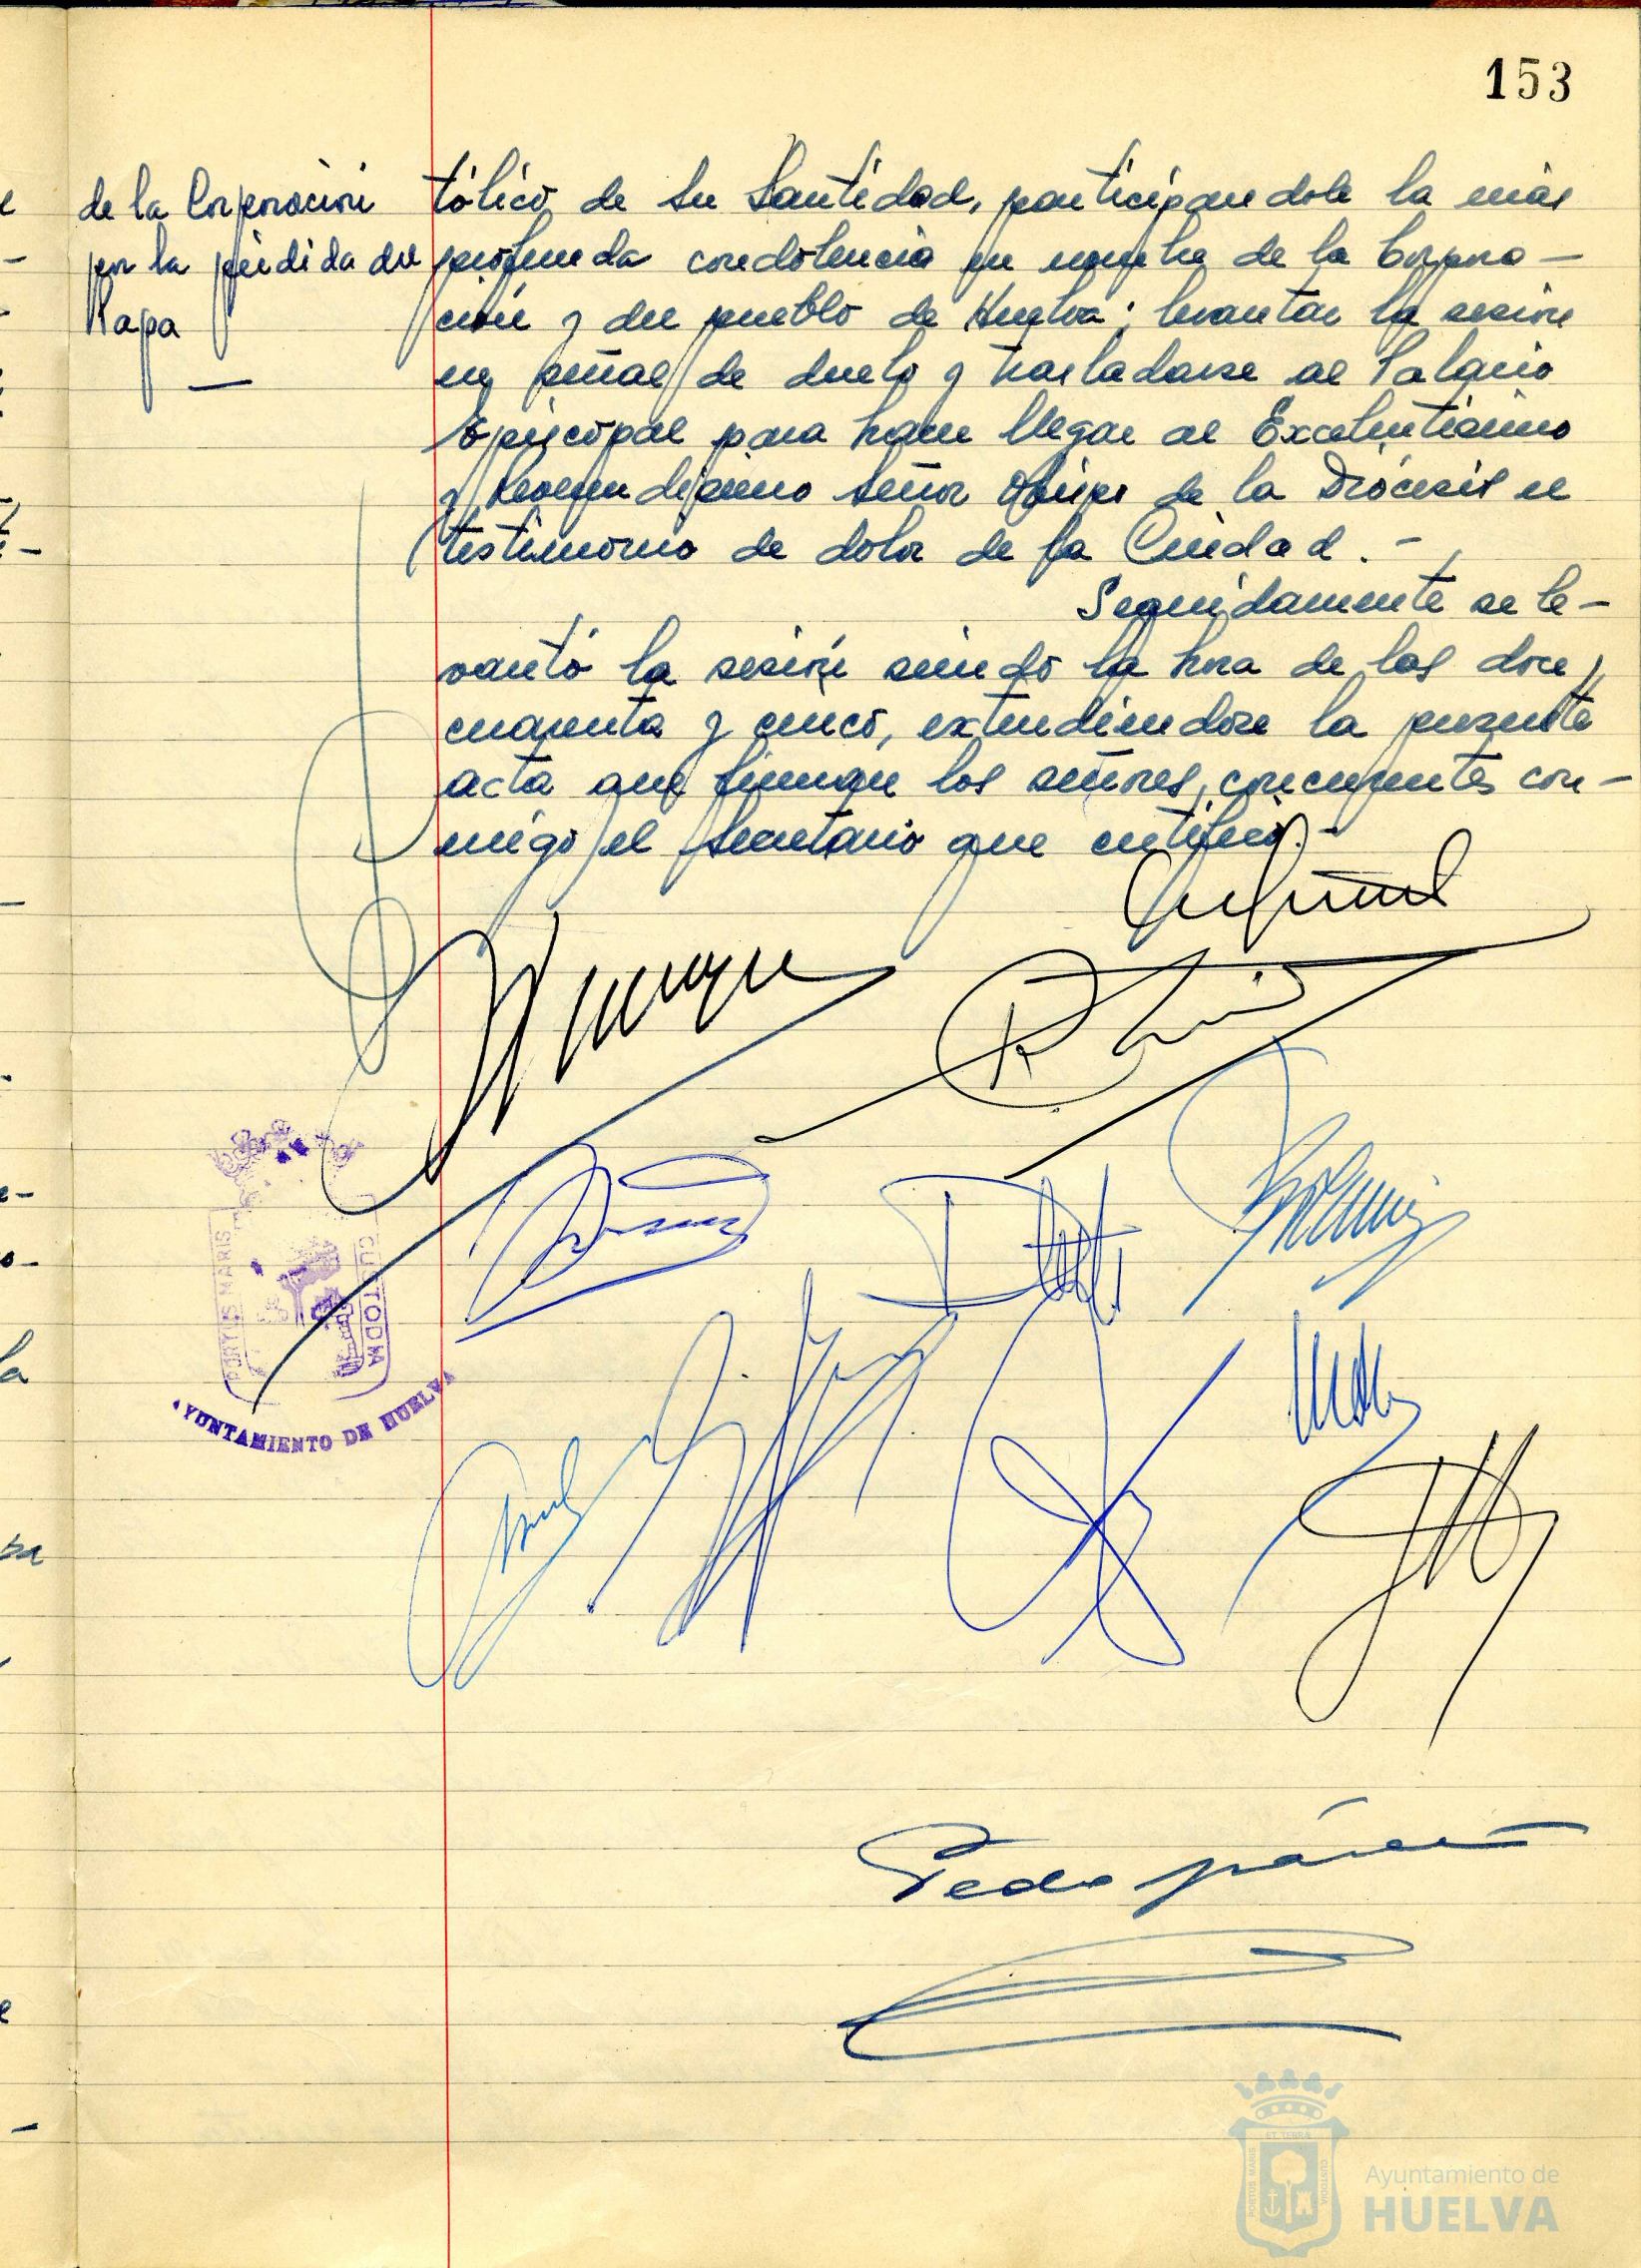 153
de la Corporación
por la pérdida del
Papa
tólico de Su Santidad, participandole la más
profunda condolencia en nombre de la Corpora-
ción y del pueblo de Huelva; levantar la sesión
en señal de duelo y trasladarse al Palacio
Episcopal para hacer llegar al Excelentísimo
y Reverendísimo Señor Obispo de la Diócesis el
testimonio de dolor de la Ciudad.-
Seguidamente se le-
vantó la sesión siendo la hora de las doce y
cuarenta y cinco, extendiendose la presente
acta que firman los señores concurrentes con-
migo el Secretario que certifico.-
PORTUS MARIS
CUSTODIA
AYUNTAMIENTO DE HUELVA
Pedro
PORTUS MARIS
ET TERRA
CUSTODIA
Ayuntamiento de
HUELVA